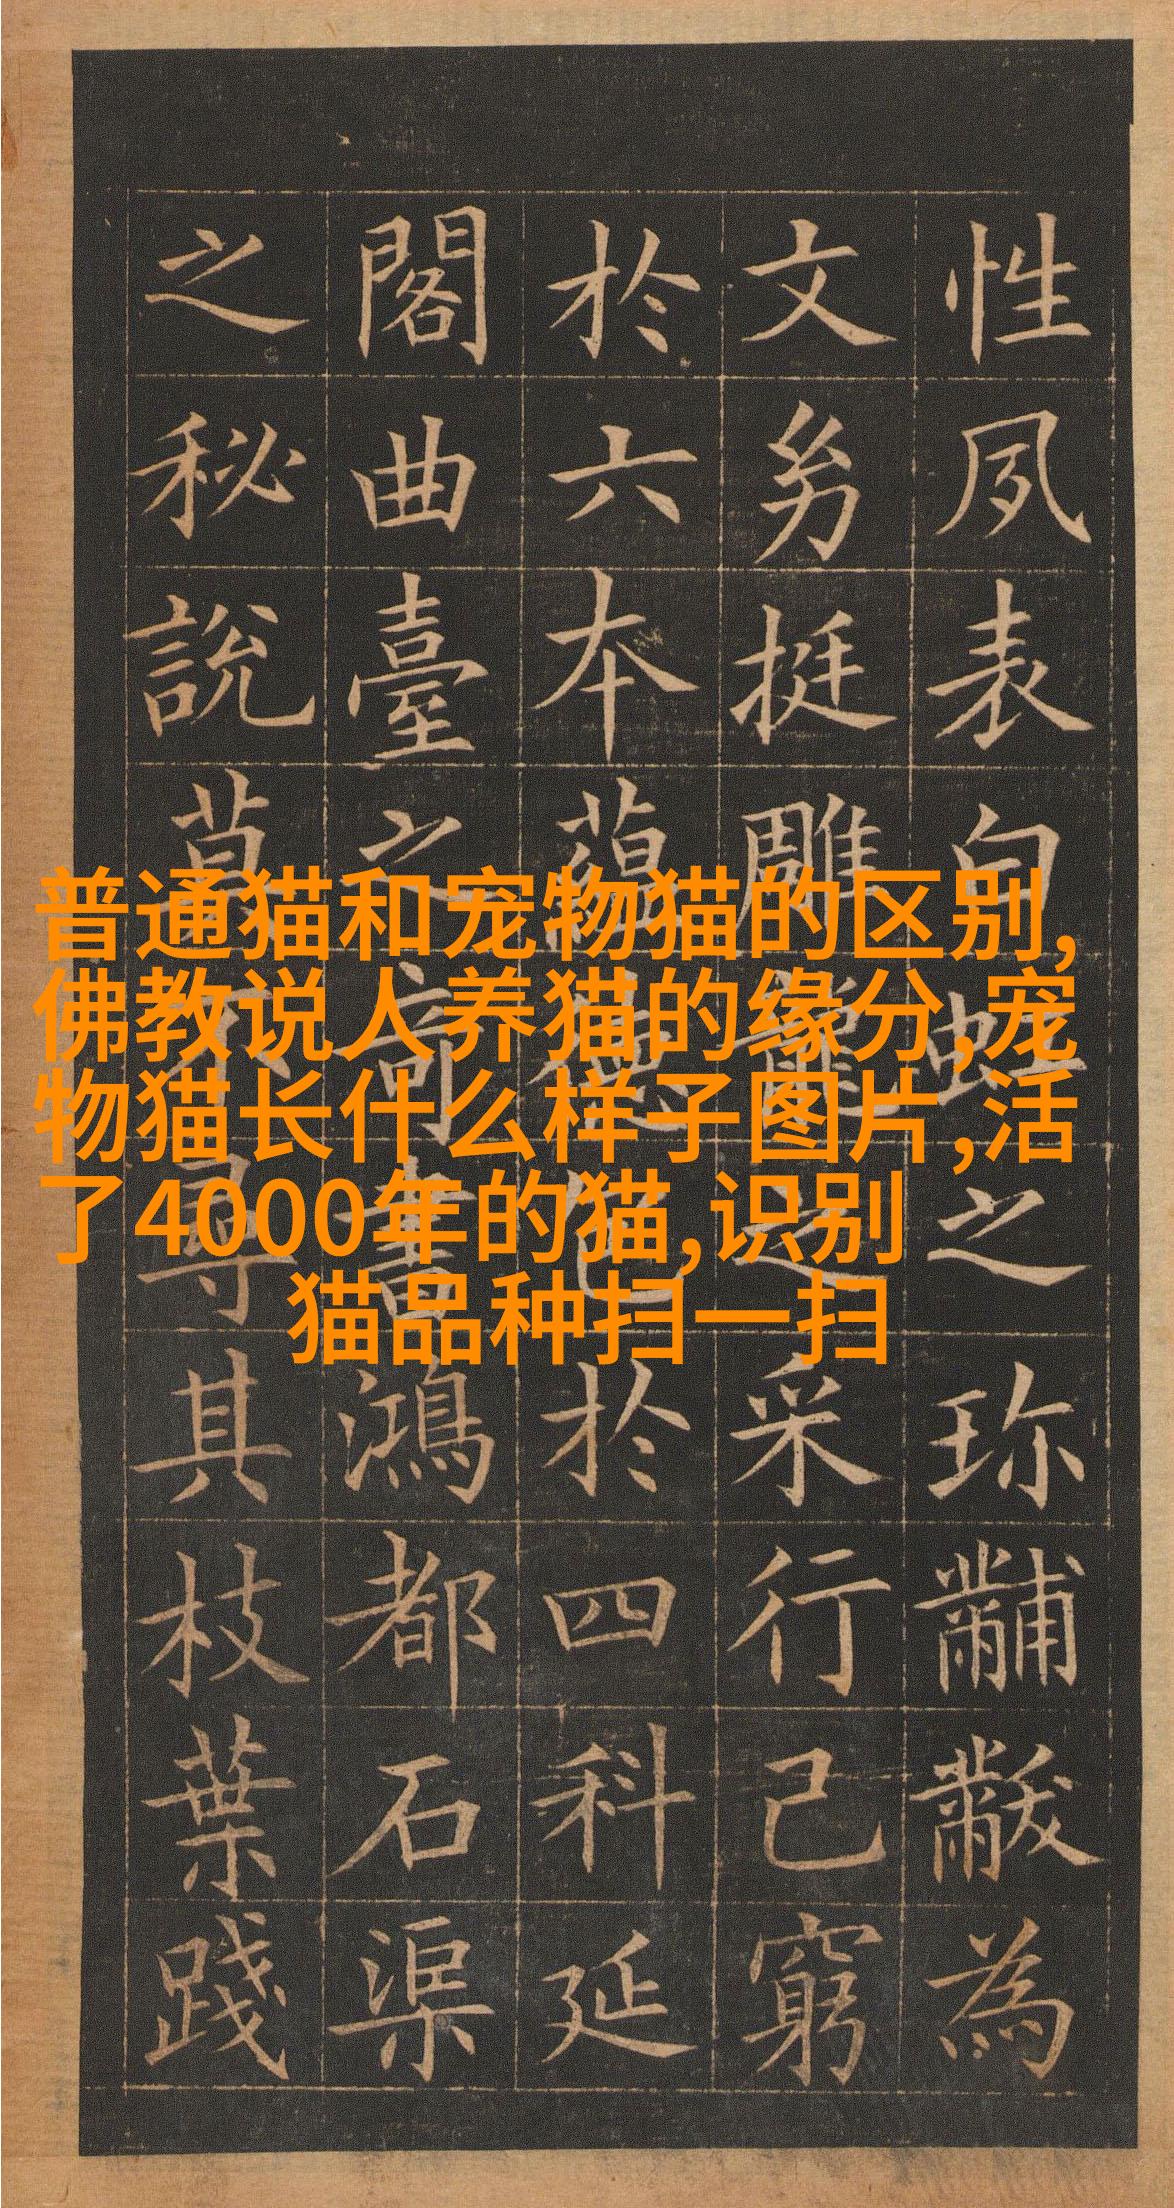 性夙表白虹之珍黼黻為
文幼挺雕龍之采行己窮
於六本蘊德已於四科延
閣曲臺之奇書鴻都石渠
之秘說莫不尋其枝葉踐
普通猫和宠物猫的区别,
佛教说人养猫的缘分,宠
物猫长什么样子图片,活
了4000年的猫,识别
猫品种扫一扫